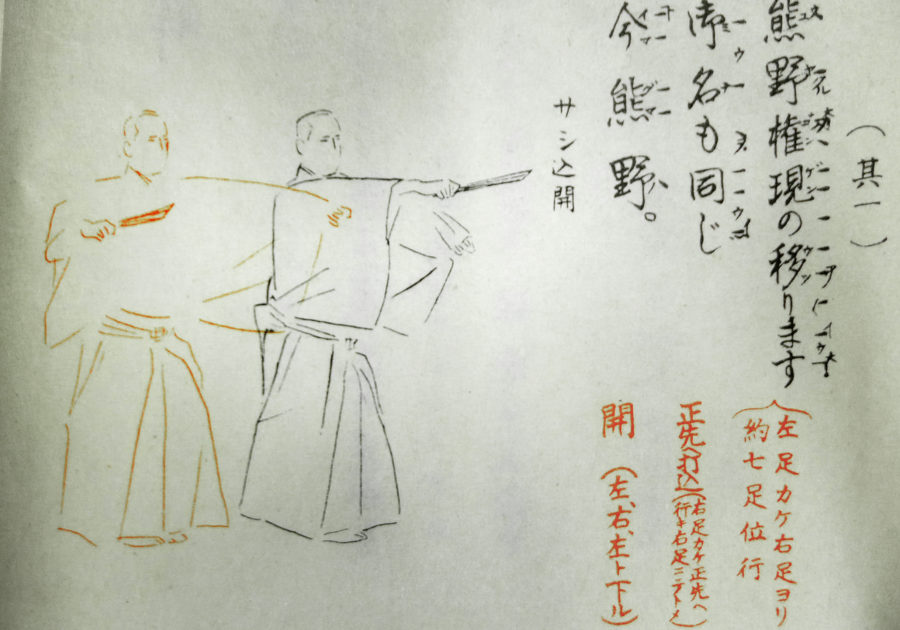 （其一）
熊野権現の移ります
御名も同じ
今熊野。
サシ込開
左足カケ右足ヨリ
約七足位行
正先へ打込（右足カケ正先へ
行キ右足ニテトメ）
開（左、右、左ト下ル）